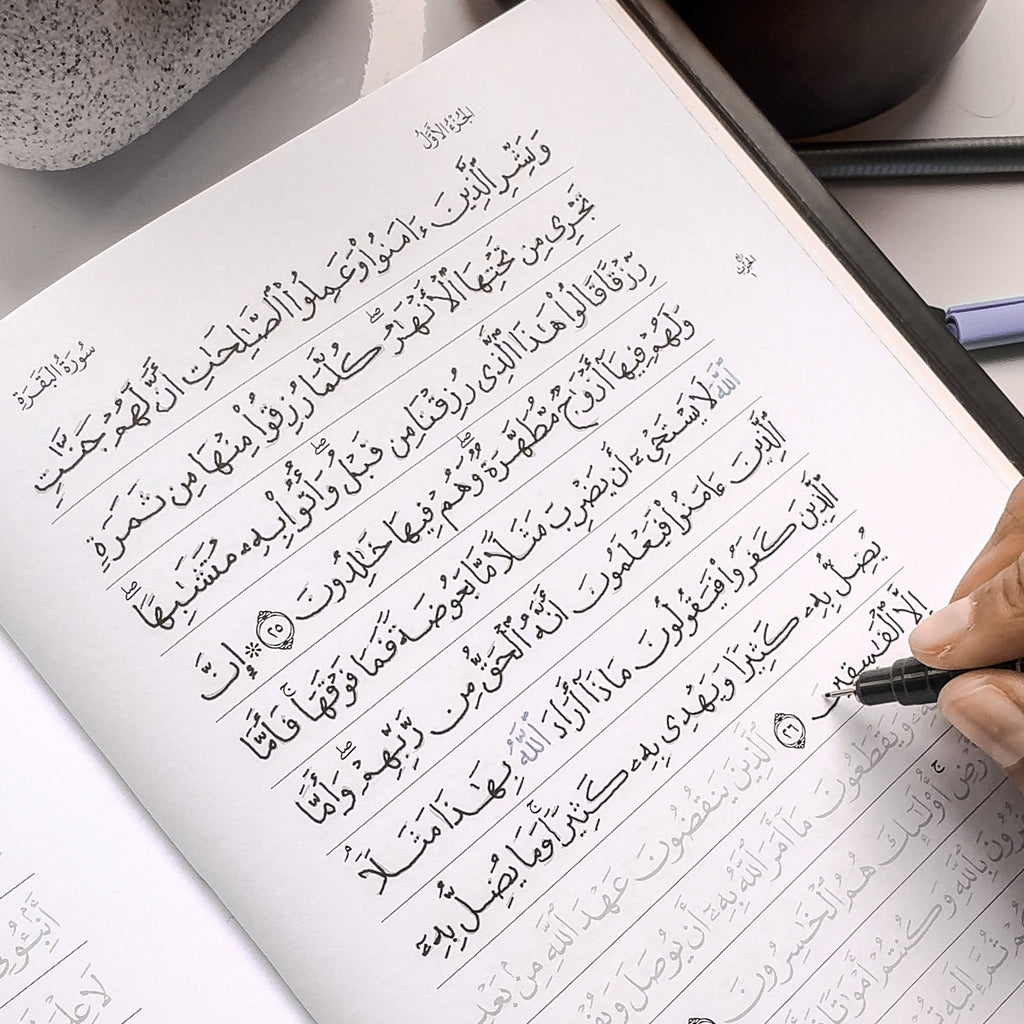 سُورَةُ البَقَرَةِ
الجُزْءُ الأَوَّلُ
وَبَشِّرِ ٱلَّذِينَ ءَامَنُوا۟ وَعَمِلُوا۟ ٱلصَّـٰلِحَـٰتِ أَنَّ لَهُمْ جَنَّـٰتٍ
تَجْرِى مِن تَحْتِهَا ٱلْأَنْهَـٰرُ ۖ كُلَّمَا رُزِقُوا۟ مِنْهَا مِن ثَمَرَةٍ
رِّزْقًا قَالُوا۟ هَـٰذَا ٱلَّذِى رُزِقْنَا مِن قَبْلُ ۖ وَأُتُوا۟ بِهِۦ مُتَشَـٰبِهًا ۖ
وَلَهُمْ فِيهَآ أَزْوَٰجٌ مُّطَهَّرَةٌ ۖ وَهُمْ فِيهَا خَـٰلِدُونَ ٢٥ ۞ إِنَّ
ٱللَّهَ لَا يَسْتَحْىِۦٓ أَن يَضْرِبَ مَثَلًا مَّا بَعُوضَةً فَمَا فَوْقَهَا ۚ فَأَمَّا
ٱلَّذِينَ ءَامَنُوا۟ فَيَعْلَمُونَ أَنَّهُ ٱلْحَقُّ مِن رَّبِّهِمْ ۖ وَأَمَّا
ٱلَّذِينَ كَفَرُوا۟ فَيَقُولُونَ مَاذَآ أَرَادَ ٱللَّهُ بِهَـٰذَا مَثَلًا ۘ
يُضِلُّ بِهِۦ كَثِيرًا وَيَهْدِى بِهِۦ كَثِيرًا ۚ وَمَا يُضِلُّ بِهِۦٓ
إِلَّا ٱلْفَـٰسِقِينَ ٢٦ ٱلَّذِينَ يَنقُضُونَ عَهْدَ ٱللَّهِ مِنۢ بَعْدِ
وَيَقْطَعُونَ مَآ أَمَرَ ٱللَّهُ بِهِۦٓ أَن يُوصَلَ
أُو۟لَـٰٓئِكَ هُمُ ٱلْخَـٰسِرُونَ
بِٱللَّهِ وَكُنتُمْ أَمْوَٰتًا
ثُمَّ إِلَيْهِ